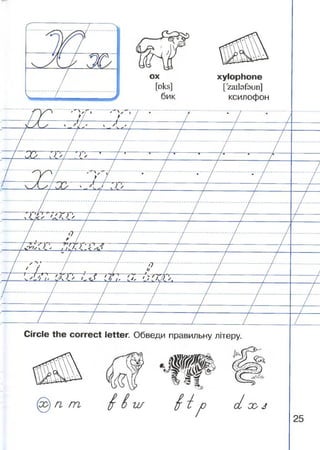 X x
ox xylophone
[ɒks] [ˈzaɪləfəʊn]
бик ксилофон
X X X
x x x
X x X x
An ox is on a box.
Circle the correct letter. Обведи правильну літеру.
x n m f b w f t p d x s
25